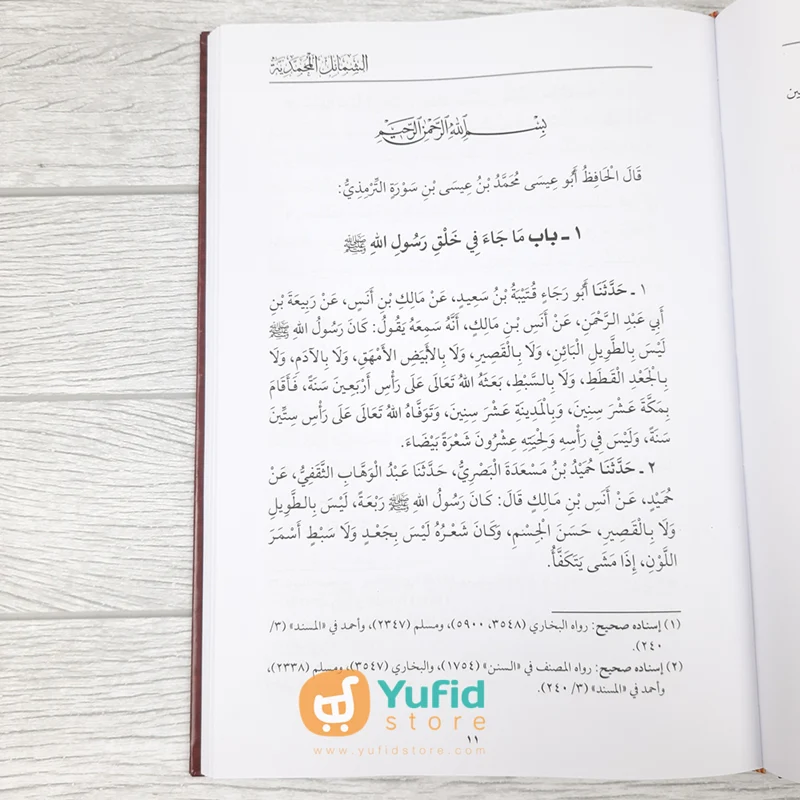 الشمائل المحمدية
ين
بِسْمِ اللهِ الرَّحْمٰنِ الرَّحِيْمِ
قَالَ الْحَافِظُ أَبُو عِيسَى مُحَمَّدُ بْنُ عِيسَى بْنِ سَوْرَةِ التِّرْمِذِيُّ:
١ - باب مَا جَاءَ فِي خَلْقِ رَسُولِ اللهِ ﷺ
١ - حَدَّثَنَا أَبُو رَجَاءٍ قُتَيْبَةُ بْنُ سَعِيدٍ، عَنْ مَالِكِ بْنِ أَنَسٍ، عَنْ رَبِيعَةَ بْنِ
أَبِي عَبْدِ الرَّحْمَنِ، عَنْ أَنَسِ بْنِ مَالِكٍ، أَنَّهُ سَمِعَهُ يَقُولُ: كَانَ رَسُولُ اللهِ ﷺ
لَيْسَ بِالطَّوِيلِ الْبَائِنِ، وَلَا بِالْقَصِيرِ، وَلَا بِالْأَبْيَضِ الْأَمْهَقِ، وَلَا بِالْآدَمِ، وَلَا
بِالْجَعْدِ الْقَطَطِ، وَلَا بِالسَّبْطِ، بَعَثَهُ اللهُ تَعَالَى عَلَى رَأْسِ أَرْبَعِينَ سَنَةً، فَأَقَامَ
بِمَكَّةَ عَشْرَ سِنِينَ، وَبِالْمَدِينَةِ عَشْرَ سِنِينَ، وَتَوَفَّاهُ اللهُ تَعَالَى عَلَى رَأْسِ سِتِّينَ
سَنَةً، وَلَيْسَ فِي رَأْسِهِ وَلِحْيَتِهِ عِشْرُونَ شَعْرَةً بَيْضَاءَ.
٢ - حَدَّثَنَا حُمَيْدُ بْنُ مَسْعَدَةَ الْبَصْرِيُّ، حَدَّثَنَا عَبْدُ الْوَهَّابِ الثَّقَفِيُّ، عَنْ
حُمَيْدٍ، عَنْ أَنَسِ بْنِ مَالِكٍ قَالَ: كَانَ رَسُولُ اللهِ ﷺ رَبْعَةً، لَيْسَ بِالطَّوِيلِ
وَلَا بِالْقَصِيرِ، حَسَنَ الْجِسْمِ، وَكَانَ شَعْرُهُ لَيْسَ بِجَعْدٍ وَلَا سَبْطٍ أَسْمَرَ
اللَّوْنِ، إِذَا مَشَى يَتَكَفَّأُ.
(١) إسناده صحيح: رواه البخاري (٣٥٤٨، ٥٩٠٠)، ومسلم (٢٣٤٧)، وأحمد في «المسند» (٣/
٢٤٠).
(٢) إسناده صحيح: رواه المصنف في «السنن» (١٧٥٤)، والبخاري (٣٥٤٧)، ومسلم (٢٣٣٨)،
وأحمد في «المسند» (٣/ ٢٤٠).
Yufid
store
www.yufidstore.com
١١